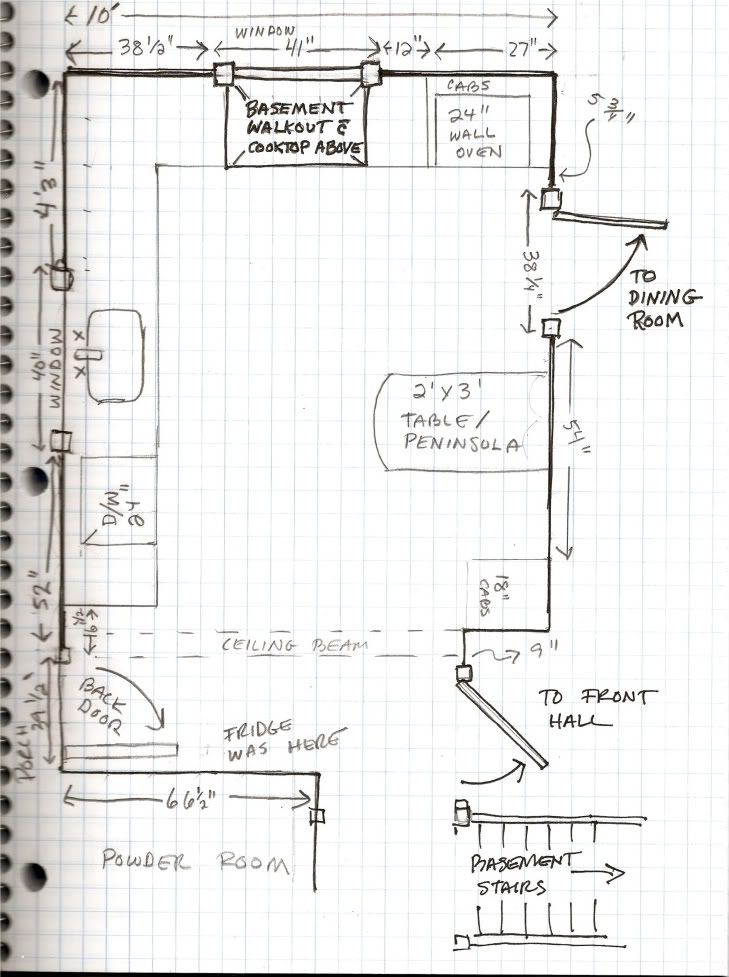 10'
WINDOW
38 1/2"
41"
12"
27"
CABS
24"
WALL
OVEN
BASEMENT
WALKOUT c̄
COOKTOP ABOVE
5 3/4"
4'3"
38 1/4"
TO
DINING
ROOM
40"
WINDOW
X
X
2' X 3'
TABLE/
PENINSULA
54"
24"
D/W
18"
CABS
52"
CEILING BEAM
9"
BACK
DOOR
TO FRONT
HALL
FRIDGE
WAS HERE
PORCH
66 1/2"
POWDER ROOM
BASEMENT
STAIRS